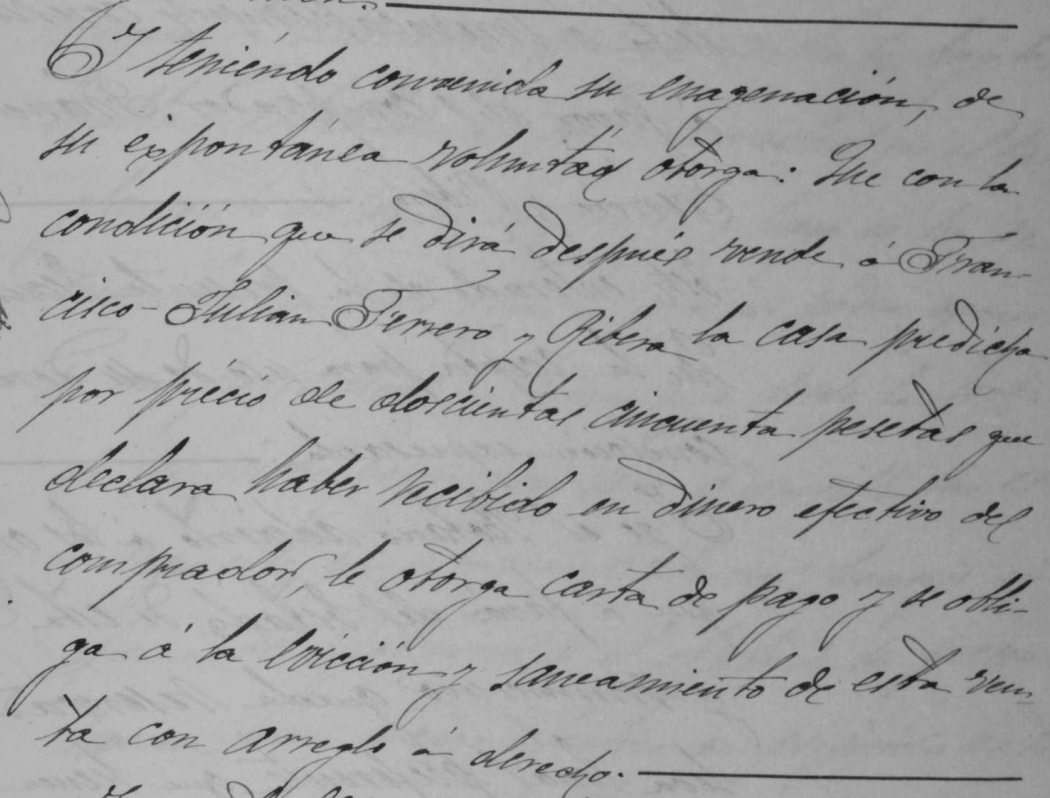 Y teniéndo convenida su enagenación, de
su expontánea voluntad otorga: Que con la
condición que se dirá después vende á Fran-
cisco-Julián Ferrero y Ribera la casa predicha
por précio de doscientas cincuenta pesetas que
declara haber recibido en dinero efectivo del
comprador, le otorga carta de pago y se obli-
ga á la evicción y saneamiento de esta ven-
ta con arreglo á derecho.